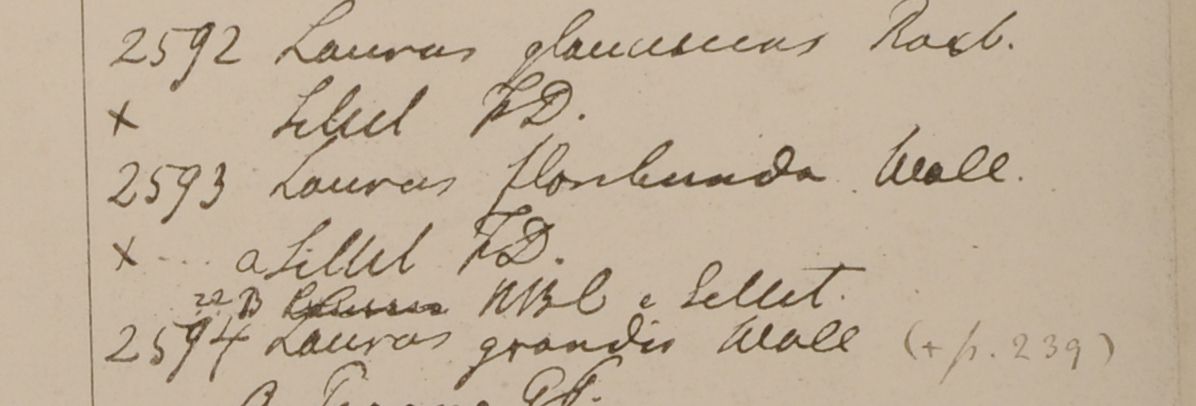 2592 Laurus glaucescens Roxb.
× Sillet FD.
2593 Laurus floribunda Wall.
× .... a Sillet FD.
B HBC e Sillet.
2594 Laurus grandis Wall (+ p. 239)